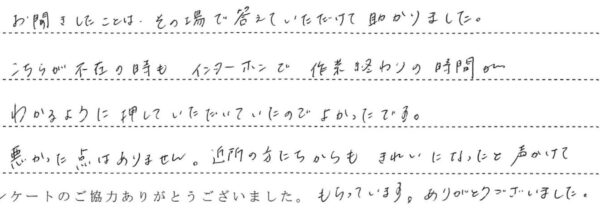 お聞きしたことは、その場で答えていただけて助かりました。
こちらが不在の時も インターホンで 作業終わりの時間が
わかるように押していただいていたのでよかったです。
悪かった点はありません。近所の方たちからも きれいになったと声かけて
ンケートのご協力ありがとうございました。もらっています。ありがとうございました。